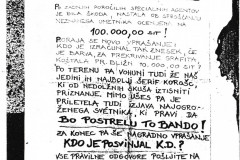 PO ZADNJIH POROČILIH SPECIALNIH AGENTOV
JE BILA ŠKODA, NASTALA OB STROŠČANJU
NEZNANEGA UMETNIKA OCENJENA NA
100.000,00 SIT!
PORAJA SE NOVO VPRAŠANJE:
KDO JE IZRAČUNAL TAK ZNESEK, ČE
JE BARVA, ZA PREKRIVANJE GRAFITA
KOŠTALA PRBL. 10.000,00 SIT?
PO TERENU PA VOHUNI TUDI ŽE NAŠ
JEDINI IN NAJBOLJI ŠERIF KOROŠC,
KI OD NEDOLŽNIH SKUŠA IZTISNITI
PRIZNANJE. MIMO UŠES PA JE
PRILETELA TUDI IZJAVA NAJOGRO-
ŽENEGA SVETNIKA, KI PRAVI DA
BO POSTRELU TO BANDO!
ZA KONEC PA ŠE NAGRADNO VPRAŠANJE:
KDO JE POSVINJAL K.D.?
VSE PRAVILNE ODGOVORE POŠLJITE NA